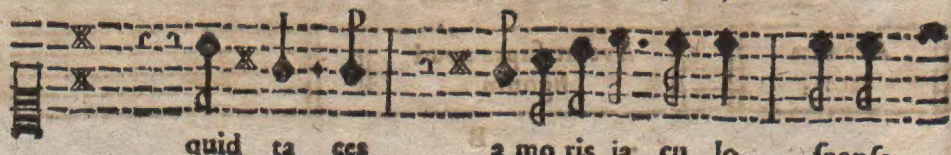 quid ta ces a mo ris ia cu lo